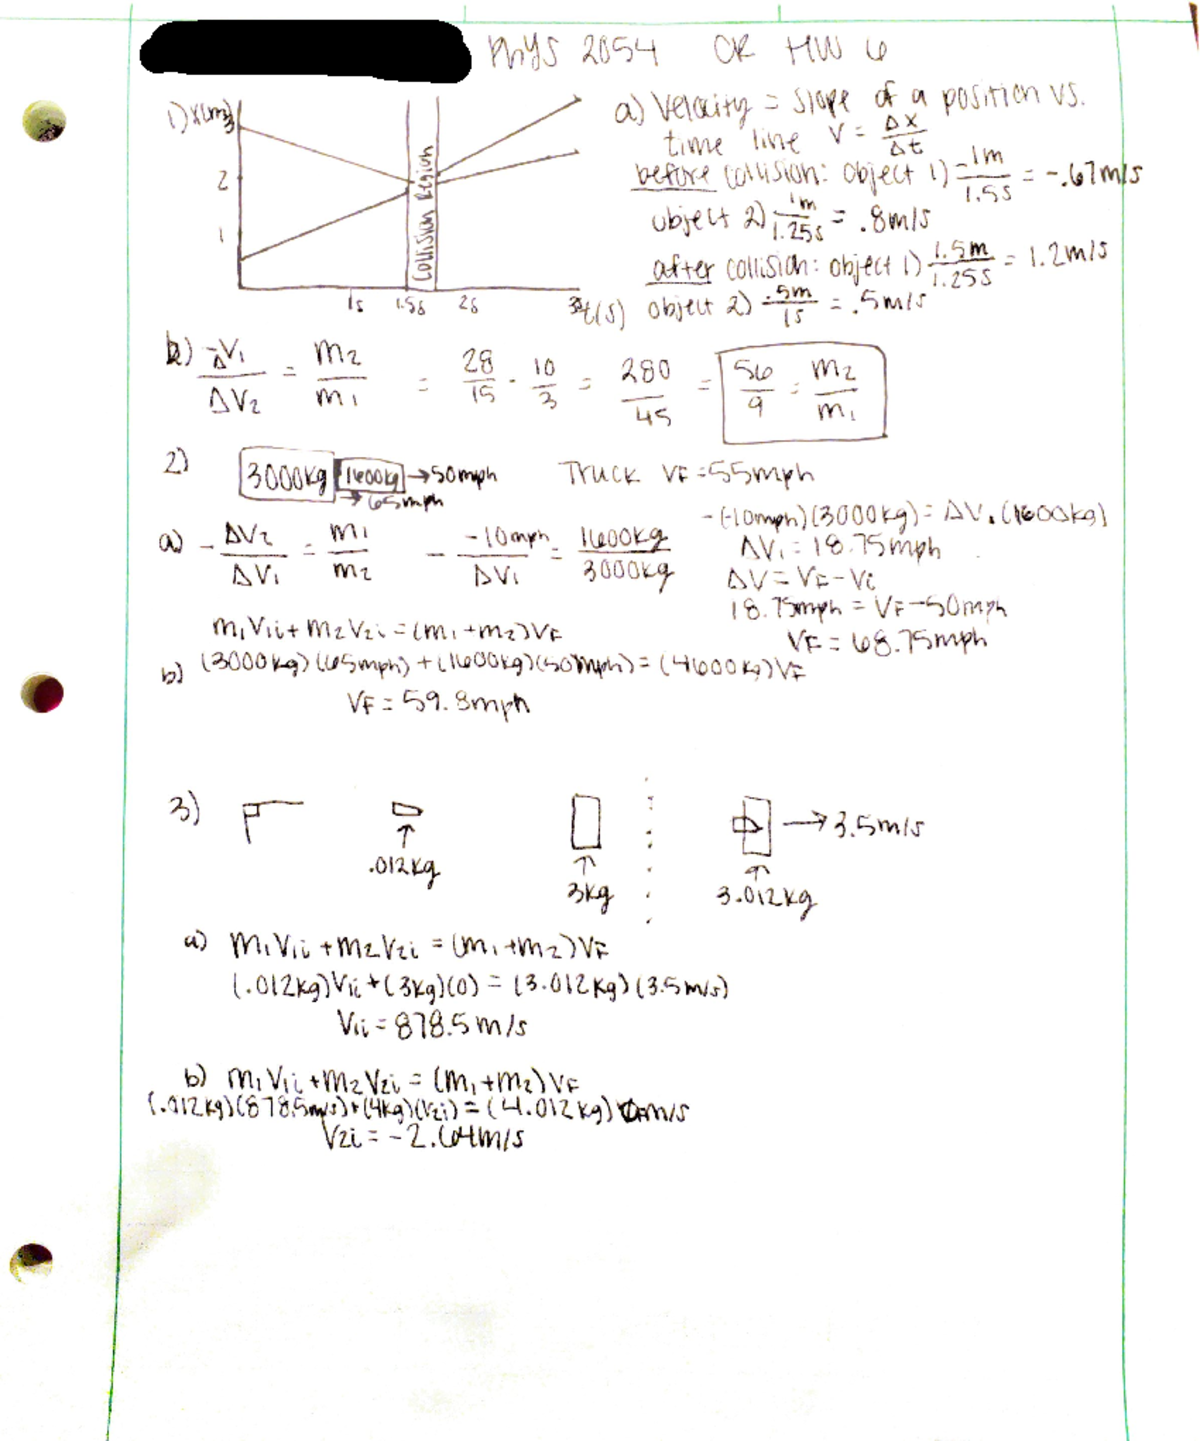 PHYS 2054 CR HW 6
1) X(m)
3
2
1
Collision Region
1s 1.5s 2s 3s t(s)
a) Velocity = slope of a position vs.
time line V = Δx/Δt
before collision: object 1) -1m/1.5s = -.67m/s
object 2) 1m/1.25s = .8m/s
after collision: object 1) 1.5m/1.25s = 1.2m/s
object 2) .5m/1s = .5m/s
b) -ΔV1/ΔV2 = m2/m1 = 28/15 · 10/3 = 280/45 = 56/9 = m2/m1
2) 3000kg 1600kg →50mph Truck VF=55mph
→65mph
a) -ΔV2/ΔV1 = m1/m2 - -10mph/ΔV1 = 1600kg/3000kg
-(-10mph)(3000kg) = ΔV1(1600kg)
ΔV1 = 18.75mph
ΔV = VF-Vi
18.75mph = VF-50mph
VF = 68.75mph
m1V1i + m2V2i = (m1+m2)VF
b) (3000kg)(65mph) + (1600kg)(50mph) = (4600kg)VF
VF = 59.8mph
3)
→3.5m/s
.012kg 3kg 3.012kg
a) m1V1i + m2V2i = (m1+m2)VF
(.012kg)V1i + (3kg)(0) = (3.012kg)(3.5m/s)
V1i = 878.5m/s
b) m1V1i + m2V2i = (m1+m2)VF
(.012kg)(878.5m/s) + (4kg)(V2i) = (4.012kg) 0m/s
V2i = -2.64m/s